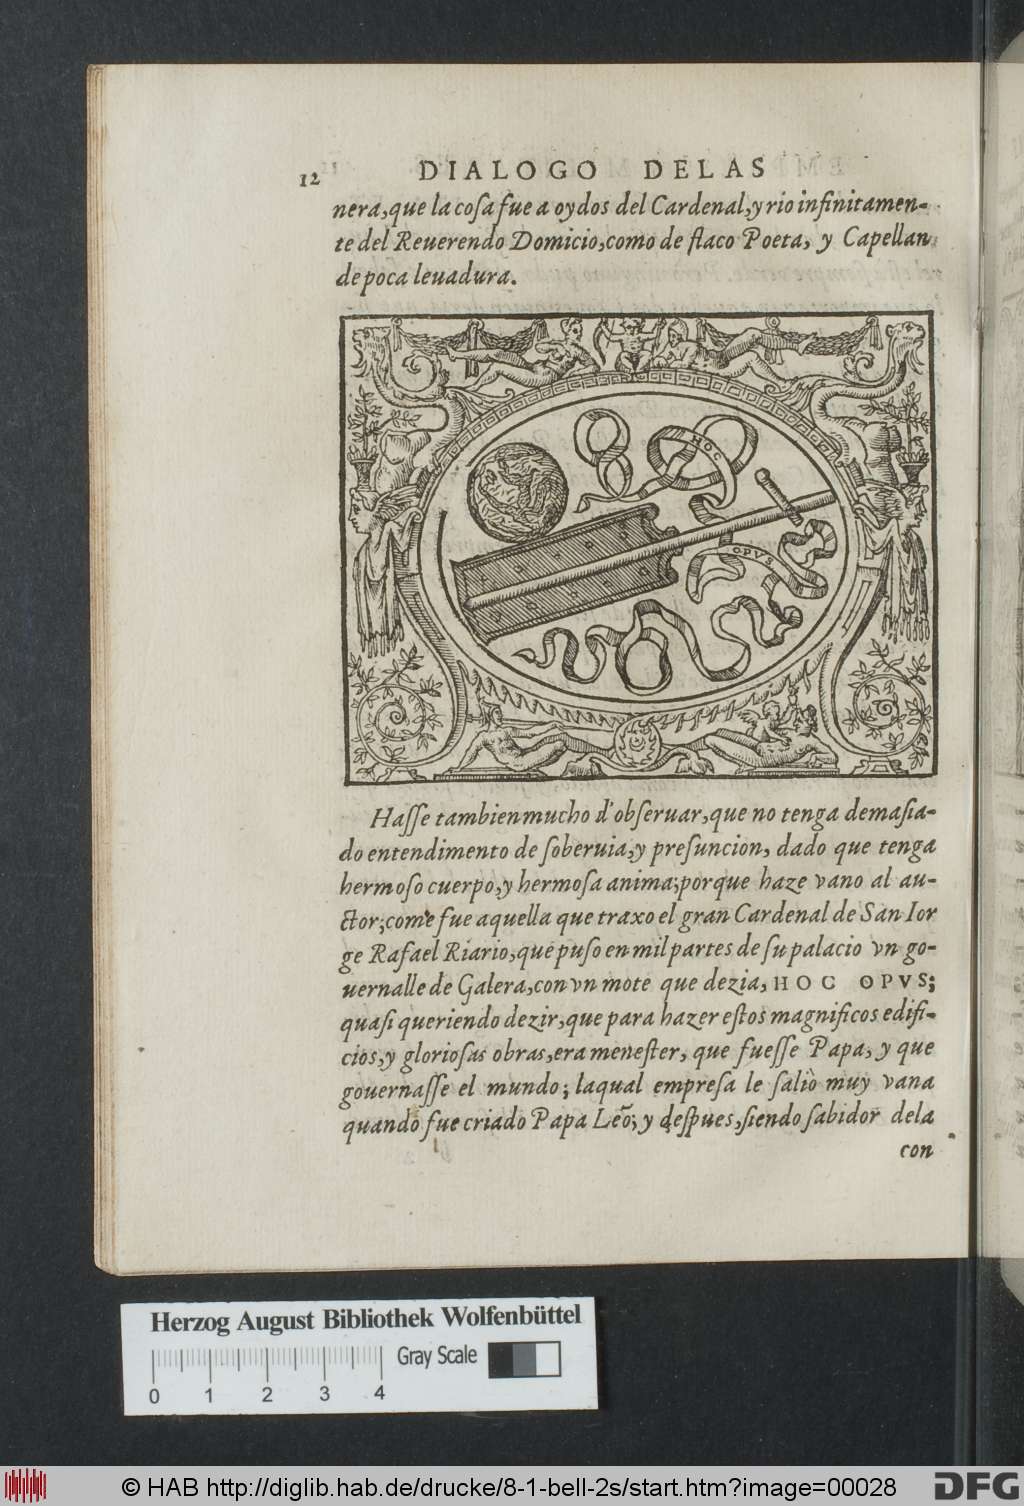 12 DIALOGO DELAS
nera,que la coſa fue a oydos del Cardenal,y rio infinitamen-
te del Reuerendo Domicio,como de flaco Poeta, y Capellan
de poca leuadura.
HOC
OPVS
Haſſe tambien mucho d'obſeruar,que no tenga demaſia-
do entendimento de ſoberuia,y preſuncion, dado que tenga
hermoſo cuerpo,y hermoſa anima;porque haze vano al au-
ctor;come fue aquella que traxo el gran Cardenal de San Ior
ge Rafael Riario,que puſo en mil partes de ſu palacio vn go-
uernalle de Galera,con vn mote que dezia, HOC OPVS;
quaſi queriendo dezir,que para hazer eſtos magnificos edifi-
cios,y glorioſas obras,era meneſter, que fueſſe Papa, y que
gouernaſſe el mundo; laqual empreſa le ſaliò muy vana
quando fue criado Papa Leō; y deſpues,ſiendo ſabidor dela
con
Herzog August Bibliothek Wolfenbüttel
Gray Scale
0 1 2 3 4
© HAB http://diglib.hab.de/drucke/8-1-bell-2s/start.htm?image=00028
DFG